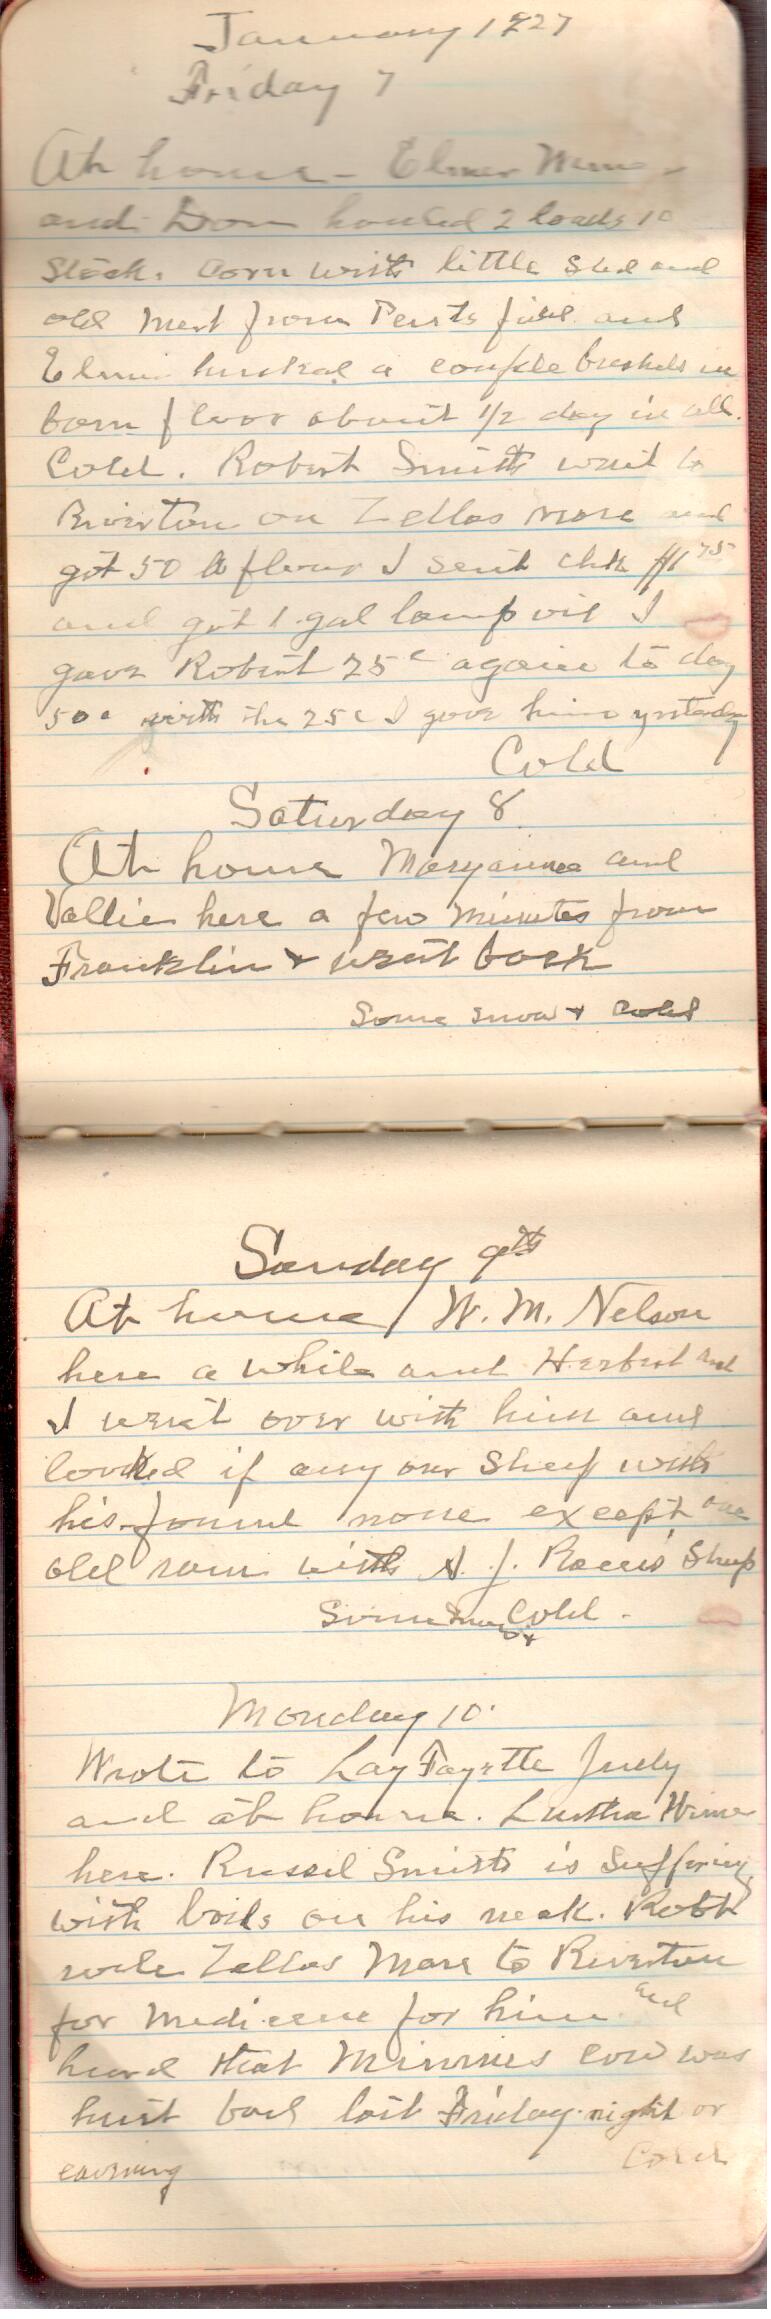 January 1927
Friday 7
At home - Elmer
and Don hauled 2 loads 10
stock. corn with little sled and
old from field and
Elmer husked a couple bushels in
barn floor about 1/2 day in all.
Cold. Robert Smith went to
Riverton on Zellas mare and
got 50 lb flour I sent chk $1 75
and got 1 gal lamp oil I
gave Robert 25c again to day
50c with the 25c I gave him ystaday
Cold
Saturday 8
At home Maryanna and
Vallie here a few minutes from
Franklin & went back
Some snow & cold
Sunday 9th
At home W. M. Nelson
here a while and Herbert and
I went over with him and
looked if any our sheep with
his found none except one
old ram with A. J. Sheep
Some snow & Cold.
Monday 10.
Wrote to LayFayette Judy
and at home. Luther
here. Russel Smith is suffering
with boils on his neck. Robt
rode Zellas Mare to Riverton
for Medicene for him and
heard that Minnies cow was
hurt bad last Friday night or
evening Cold